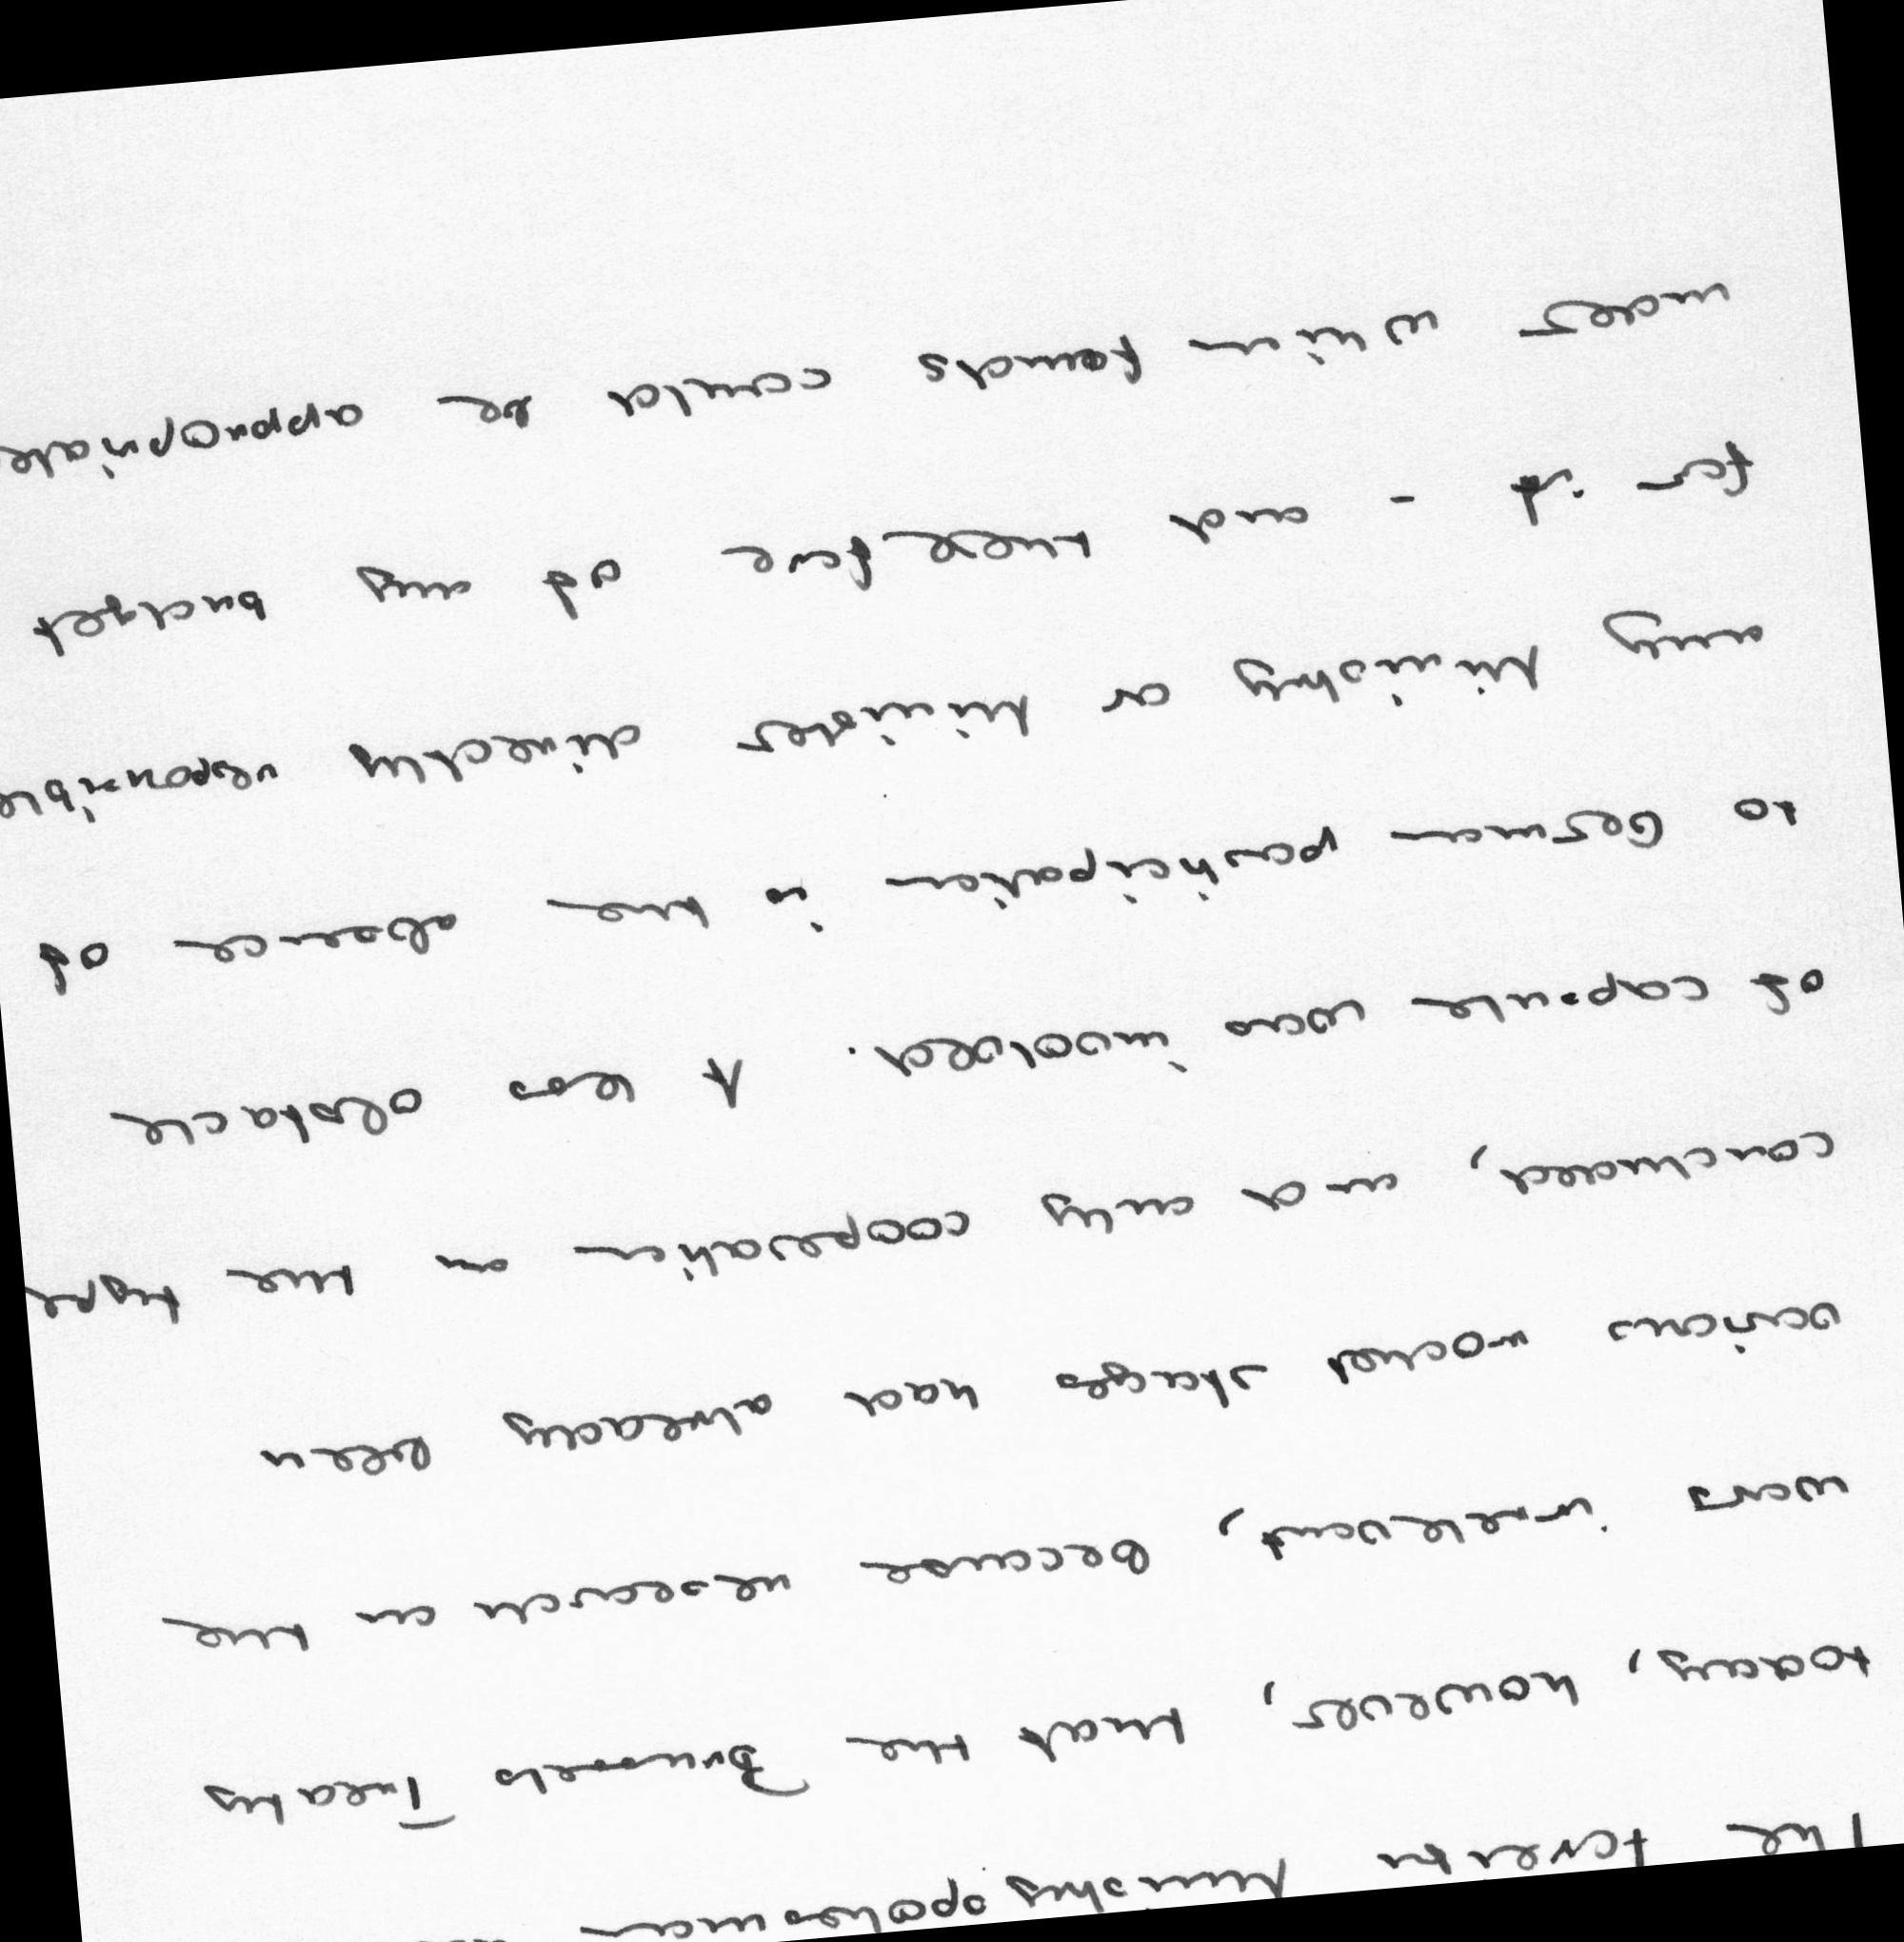 The Ministry spokesman
today, however, that the Brussels Treaty
was irrelevant, because research on the
various rocket stages had already been
concluded, and only cooperation on the type
of capsule was involved. A obstacle
to German participation is the absence of
any Ministry or Minister directly responsible
for it - and therefore of any budget
under which founds could be appropriate